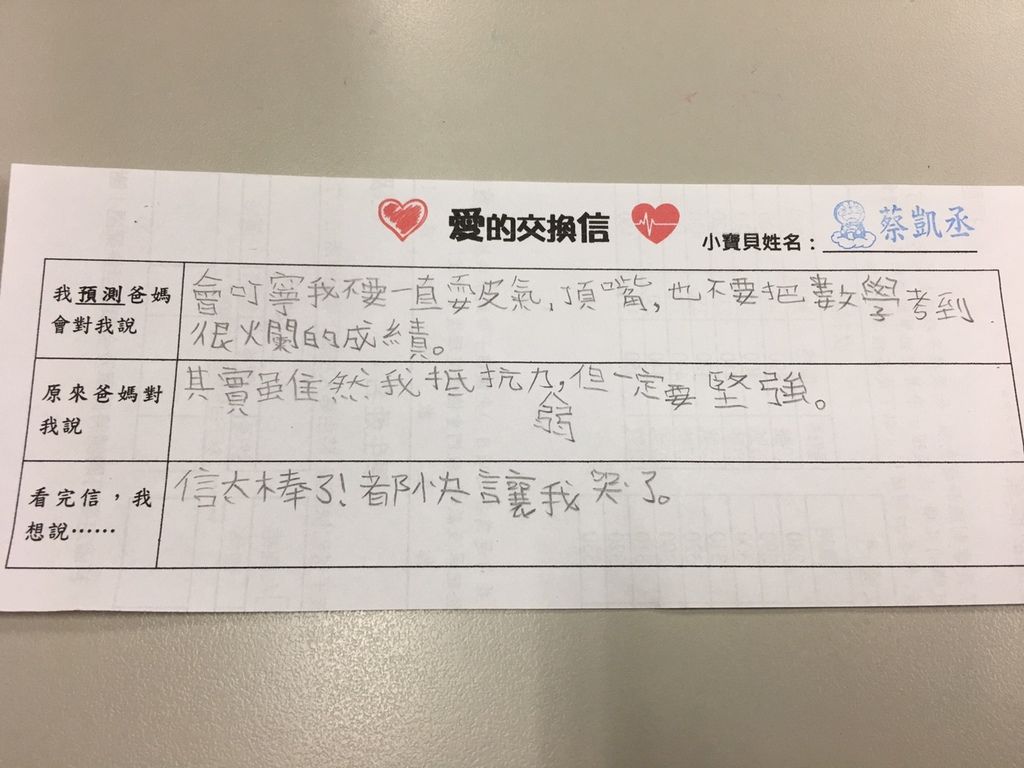 愛的交換信
小寶貝姓名：蔡凱丞
我預測爸媽
會對我說
會叮寧我不要一直耍皮氣,頂嘴,也不要把數學考到
很爛的成績。
原來爸媽對
我說
其實雖然我抵抗力弱,但一定要堅強。
看完信，我
想說……
信太棒了!都快讓我哭了。